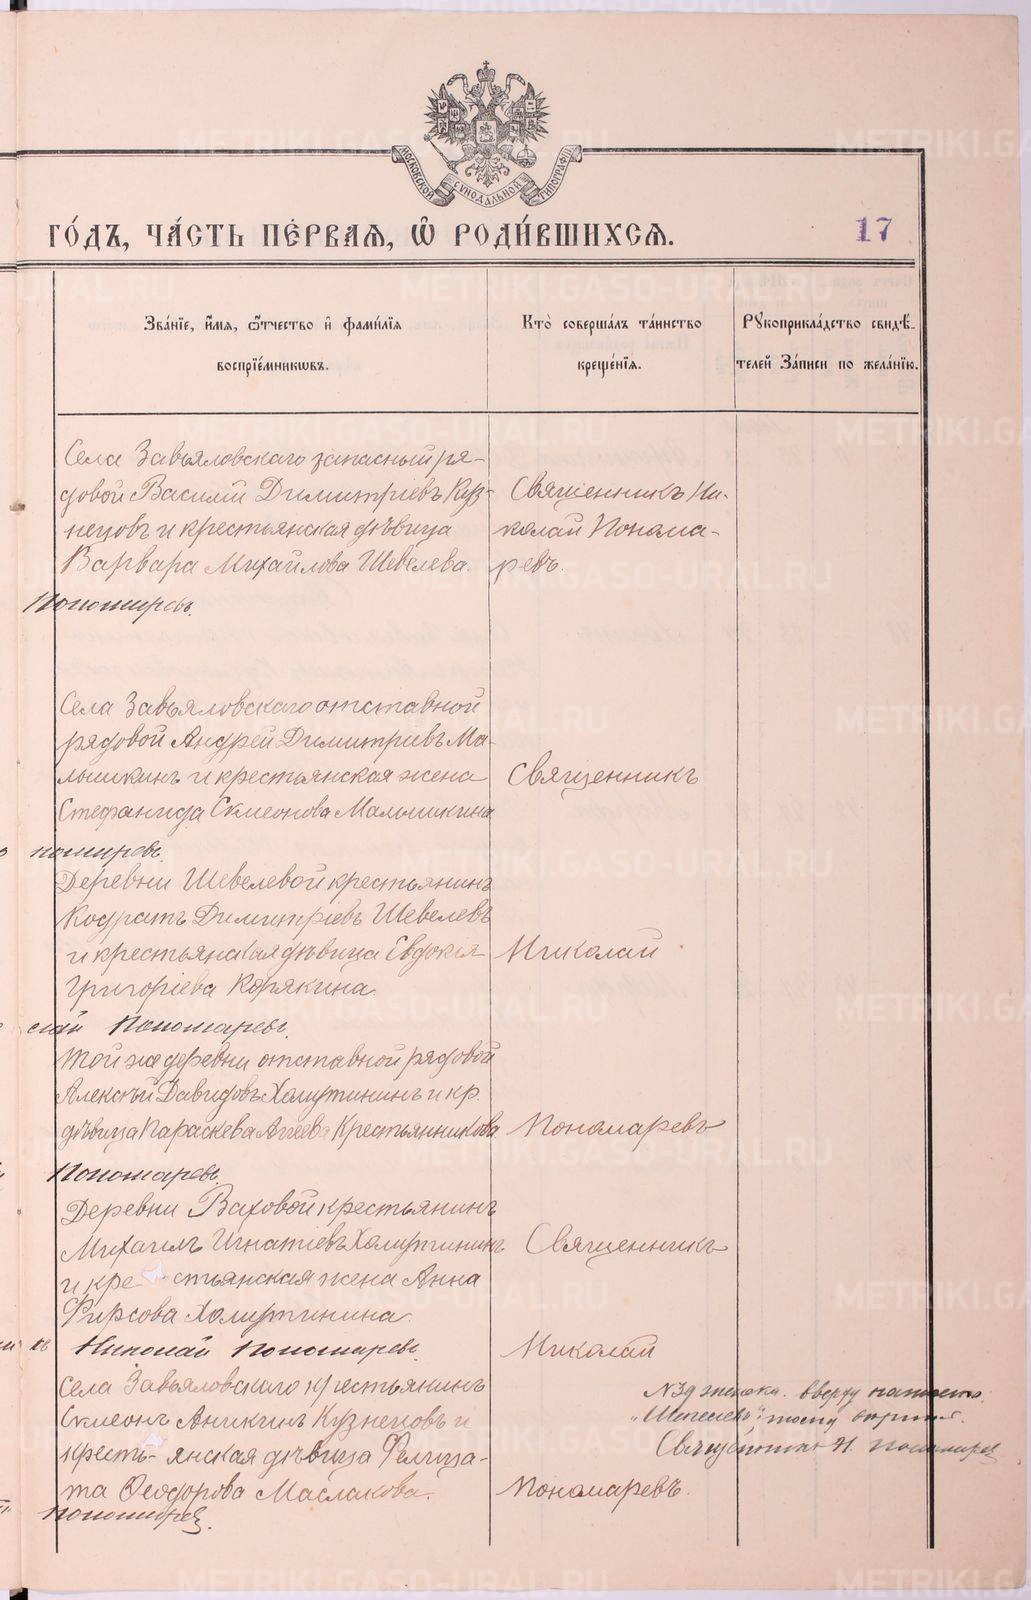 МОСКОВСКОЙ СУНОДАЛЬНОЙ ТИПОГРАФІИ
ГО́ДЪ, ЧА́СТЬ ПЕ́РВАѦ, Ѿ РОДИ́ВШИХСѦ.
17
Зва́нїе, и҆́мѧ, ѻ҆́тчество и҆ фами́лїѧ
воспрїе́мникѡвъ.
Кто̀ соверша́лъ та́инство
креще́нїѧ.
Рꙋкоприкла́дство свидѣ́-
телей За́писи по жела́нїю.
Села Завьяловскаго запасный ря-
довой Василій Димитріевъ Куз-
нецовъ и крестьянская дѣвица
Варвара Михайлова Шевелева.
Священникъ Ни-
колай Понома-
ревъ.
Пономаревъ.
Села Завьяловскаго отставной
рядовой Андрей Димитріевъ Ма-
лышкинъ и крестьянская жена
Стефанида Симеонова Малышкина
Священникъ
номаревъ
Деревни Шевелевой крестьянинъ
Кодратъ Димитріевъ Шевелевъ
и крестьянская дѣвица Евдокія
Григоріева Корякина
Николай
лай Пономаревъ.
Той же деревни отставной рядовой
Алексѣй Давидовъ Халутининъ и кр.
дѣвица Параскева Агѣева Крестьянникова
Пономаревъ
Пономаревъ.
Деревни Ваховой крестьянинъ
Михаилъ Игнатіевъ Халутининъ
и кре- стьянская жена Анна
Фирсова Халутинина.
Священникъ
Николай Пономаревъ.
Николай
Села Завьяловскаго крестьянинъ
Симеонъ Аникинъ Кузнецовъ и
кресть- янская дѣвица Фелица-
та Ѳеодорова Маслакова.
Пономаревъ.
вверху
Пономарев.
METRIKI.GASO-URAL.RU